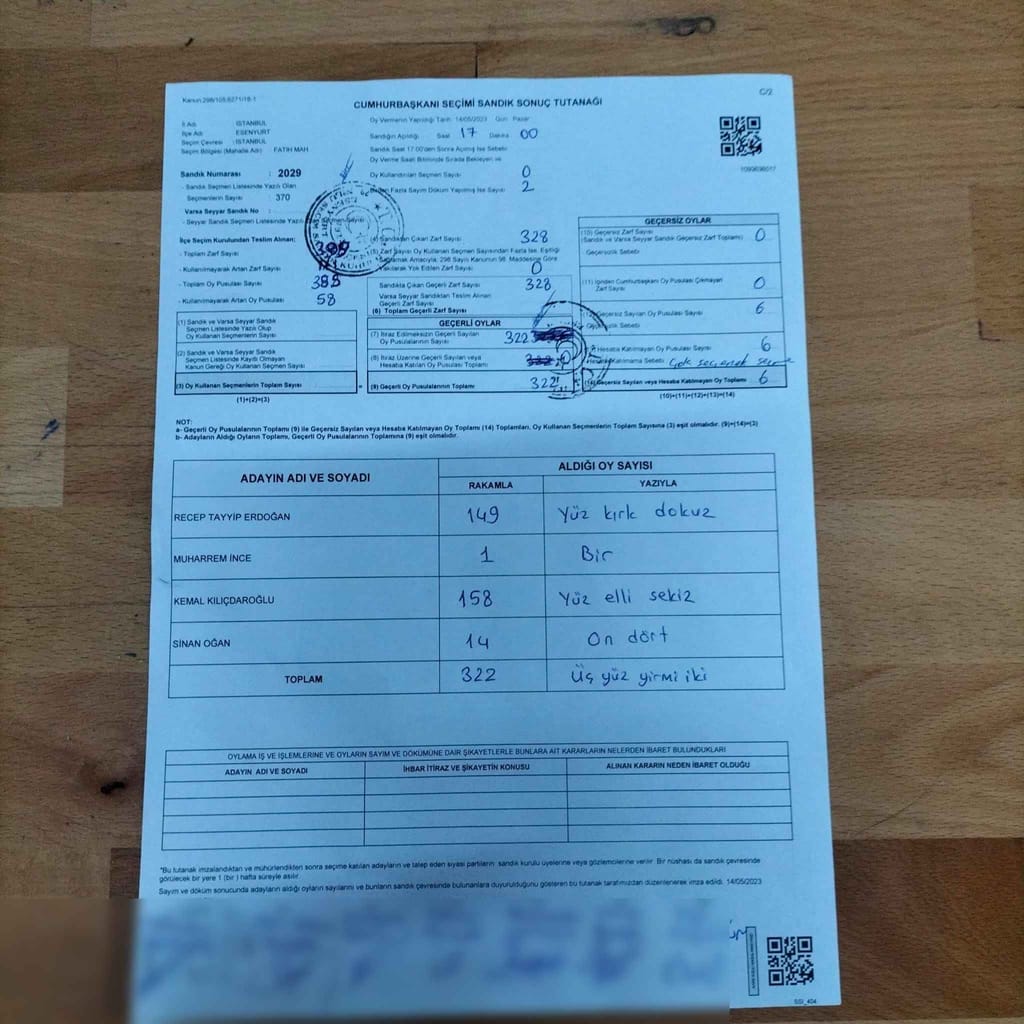 Kanun 298/105,6271/18-1
C/2
CUMHURBAŞKANI SEÇİMİ SANDIK SONUÇ TUTANAĞI
İl Adı : İSTANBUL
İlçe Adı : ESENYURT
Seçim Çevresi : İSTANBUL
Seçim Bölgesi (Mahalle Adı) : FATİH MAH
Sandık Numarası : 2029
- Sandık Seçmen Listesinde Yazılı Olan
Seçmenlerin Sayısı : 370
Varsa Seyyar Sandık No :
- Seyyar Sandık Seçmen Listesinde Yazılı
Oy Vermenin Yapıldığı Tarih 14/05/2023 Gün Pazar
Sandığın Açıldığı Saat 17 Dakika 00
Sandık Saat 17:00'den Sonra Açılmış İse Sebebi
Oy Verme Saati Bitiminde Sırada Bekleyen ve
Oy Kullandırılan Seçmen Sayısı 0
Birden Fazla Sayım Döküm Yapılmış İse Sayısı 2
İlçe Seçim Kurulundan Teslim Alınan;
- Toplam Zarf Sayısı
- Kullanılmayarak Artan Zarf Sayısı
- Toplam Oy Pusulası Sayısı
- Kullanılmayarak Artan Oy Pusulası 58
(4) Sandıktan Çıkan Zarf Sayısı 328
(5) Zarf Sayısı Oy Kullanan Seçmen Sayısından Fazla İse, Eşitliği
Sağlamak Amacıyla, 298 Sayılı Kanunun 98. Maddesine Göre
Yakılarak Yok Edilen Zarf Sayısı 0
Sandıkta Çıkan Geçerli Zarf Sayısı 328
Varsa Seyyar Sandıktan Teslim Alınan
Geçerli Zarf Sayısı
(6) Toplam Geçerli Zarf Sayısı
(1) Sandık ve Varsa Seyyar Sandık
Seçmen Listesinde Yazılı Olup
Oy Kullanan Seçmenlerin Sayısı
(2) Sandık ve Varsa Seyyar Sandık
Seçmen Listesinde Kayıtlı Olmayan
Kanun Gereği Oy Kullanan Seçmen Sayısı
(3) Oy Kullanan Seçmenlerin Toplam Sayısı =
(1)+(2)=(3)
GEÇERLİ OYLAR
(7) İtiraz Edilmeksizin Geçerli Sayılan
Oy Pusulalarının Sayısı 322
(8) İtiraz Üzerine Geçerli Sayılan veya
Hesaba Katılan Oy Pusulası Sayısı 0
(9) Geçerli Oy Pusulalarının Toplamı 322
GEÇERSİZ OYLAR
(10) Geçersiz Zarf Sayısı
(Sandık ve Varsa Seyyar Sandık Geçersiz Zarf Toplamı) 0
Geçersizlik Sebebi
(11) İçinden Cumhurbaşkanı Oy Pusulası Çıkmayan
Zarf Sayısı 0
(12) Geçersiz Sayılan Oy Pusulası Sayısı 6
Geçersizlik Sebebi
Hesaba Katılmayan Oy Pusulası Sayısı 6
Hesaba Katılmama Sebebi Çok seçenek seçme
(14) Geçersiz Sayılan veya Hesaba Katılmayan Oy Toplamı 6
(10)+(11)+(12)+(13)=(14)
NOT:
a- Geçerli Oy Pusulalarının Toplamı (9) ile Geçersiz Sayılan veya Hesaba Katılmayan Oy Toplamı (14) Toplamları, Oy Kullanan Seçmenlerin Toplam Sayısına (3) eşit olmalıdır. (9)+(14)=(3)
b- Adayların Aldığı Oyların Toplamı, Geçerli Oy Pusulalarının Toplamına (9) eşit olmalıdır.
ADAYIN ADI VE SOYADI ALDIĞI OY SAYISI
RAKAMLA YAZIYLA
RECEP TAYYİP ERDOĞAN 149 Yüz kırk dokuz
MUHARREM İNCE 1 Bir
KEMAL KILIÇDAROĞLU 158 Yüz elli sekiz
SİNAN OĞAN 14 On dört
TOPLAM 322 Üç yüz yirmi iki
OYLAMA İŞ VE İŞLEMLERİNE VE OYLARIN SAYIM VE DÖKÜMÜNE DAİR ŞİKAYETLERLE BUNLARA AİT KARARLARIN NELERDEN İBARET BULUNDUKLARI
ADAYIN ADI VE SOYADI İHBAR İTİRAZ VE ŞİKAYETİN KONUSU ALINAN KARARIN NEDEN İBARET OLDUĞU
*Bu tutanak imzalandıktan ve mühürlendikten sonra seçime katılan adayların ve talep eden siyasi partilerin sandık kurulu üyelerine veya gözlemcilerine verilir. Bir nüshası da sandık çevresinde
görülecek bir yere 1 (bir) hafta süreyle asılır.
Sayım ve döküm sonucunda adayların aldığı oyların sayılarını ve bunların sandık çevresinde bulunanlara duyurulduğunu gösteren bu tutanak tarafımızdan düzenlenerek imza edildi. 14/05/2023
SSI_404